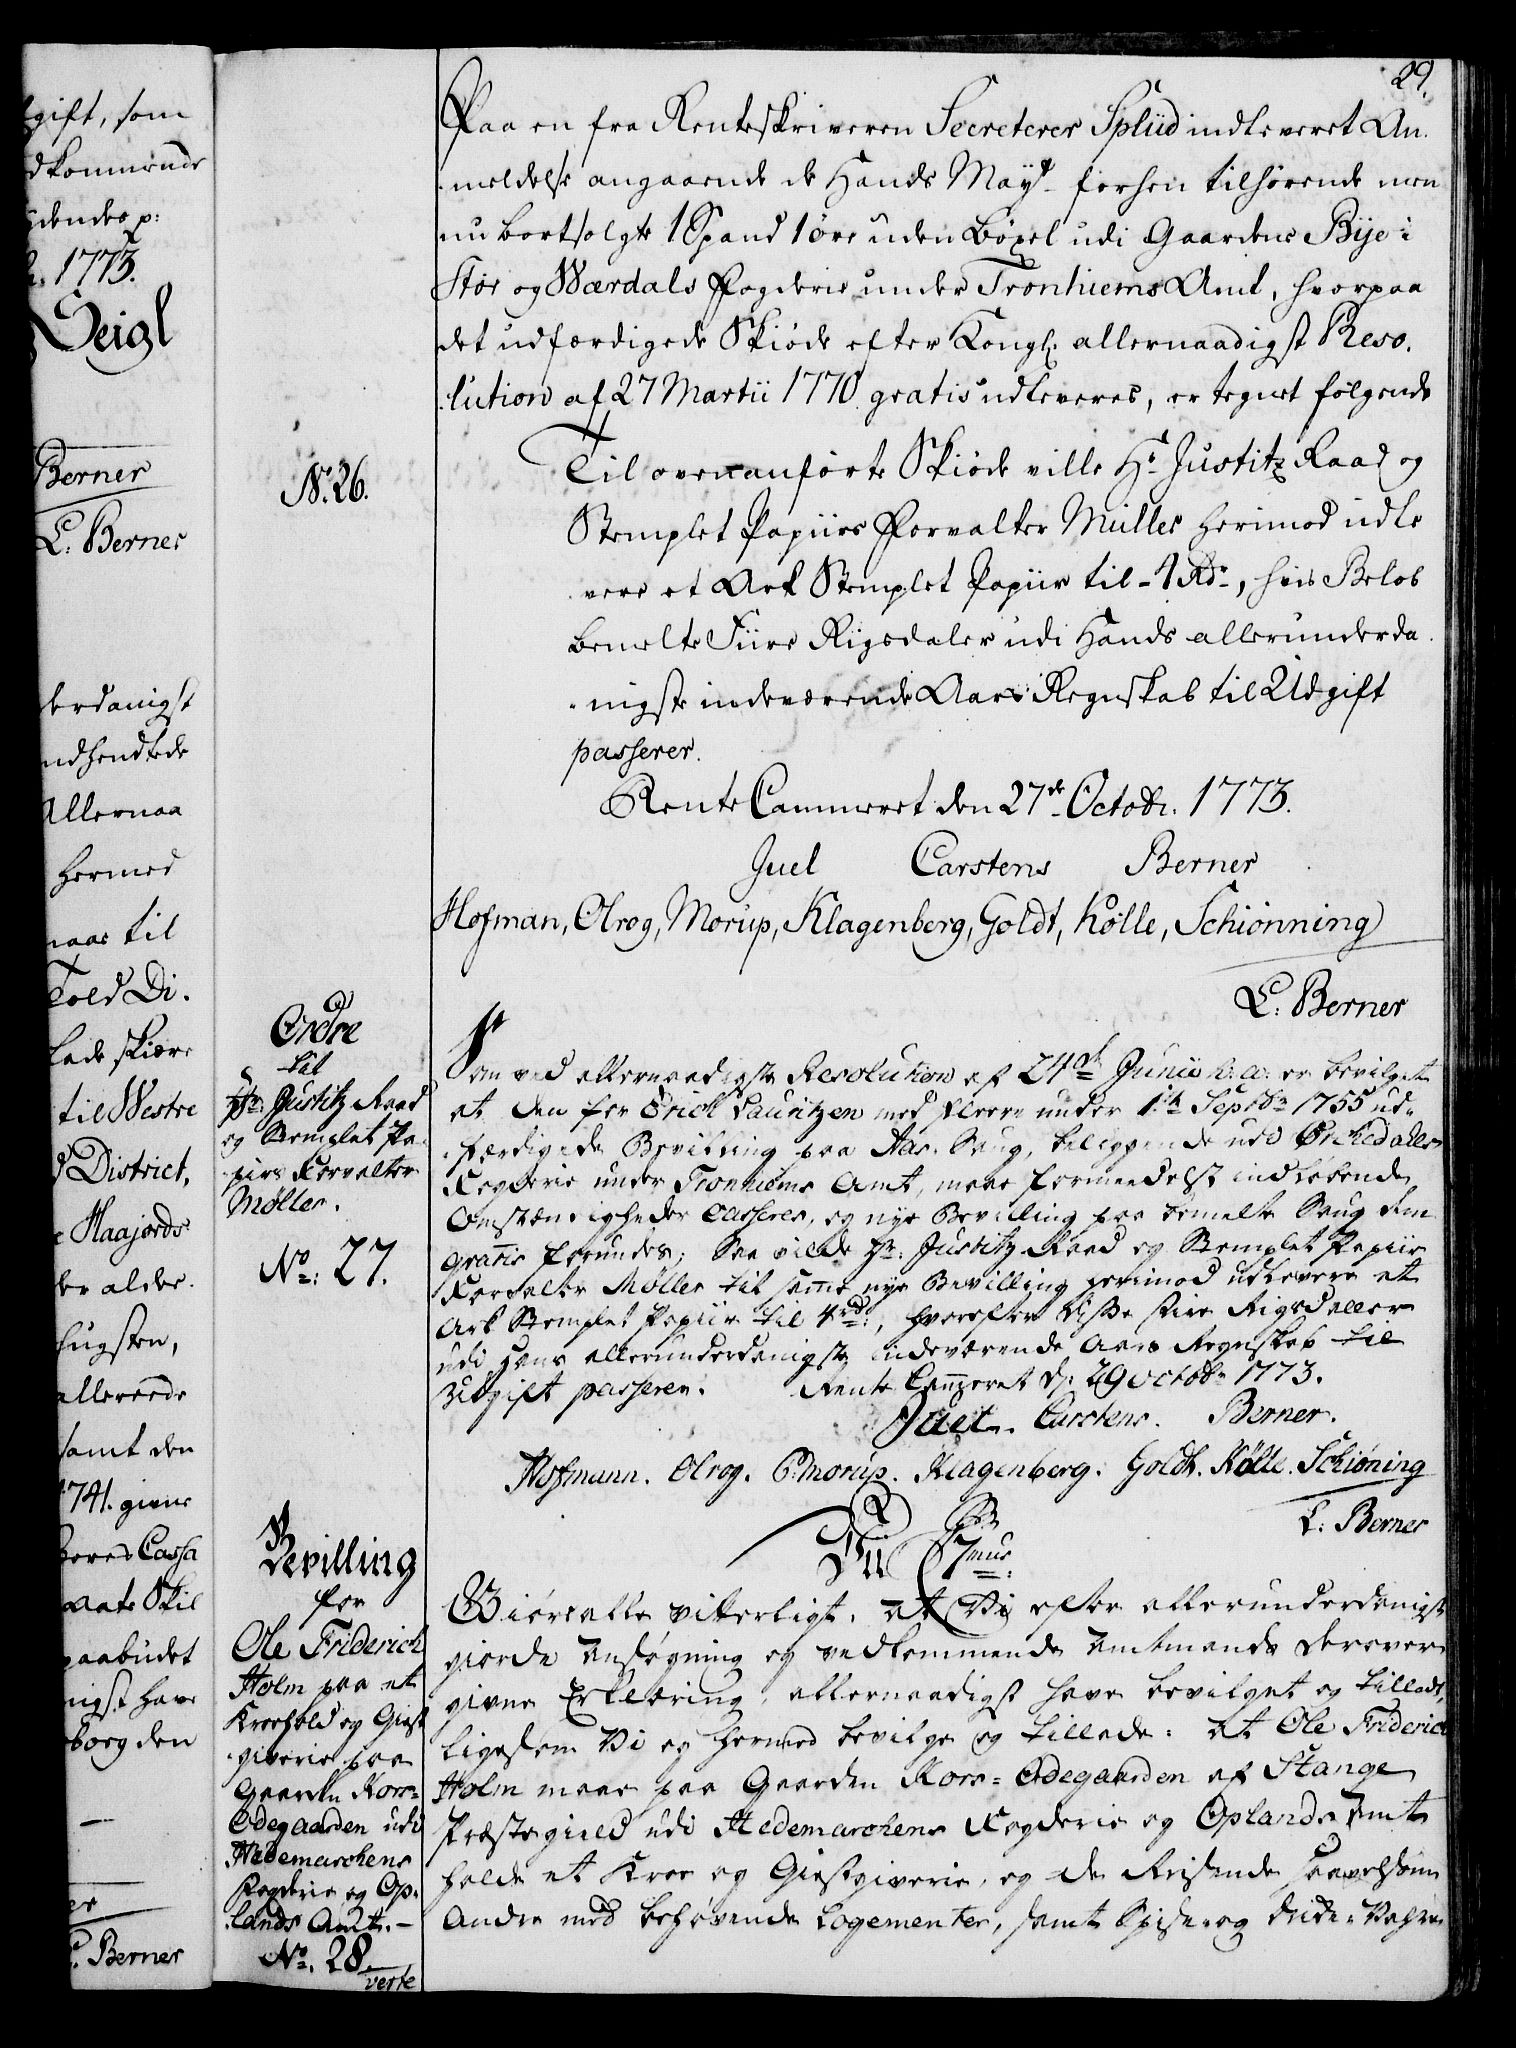 gift, som
dkommende
dendes p:
1773.
Seigl
Berner
L: Berner
derdanigst
ndhendtede
Allernaa
hermed
naar til
Told Di-
lade skiære
til Westre
District,
Haajords
der alder-
hugsten,
allerede
samt den
1741. givne
Cassa
Skil
paabudet
nigst have
borg den
L. Berner
29.
Paa en fra Renteskriveren Secreterer Splüd indleveret An-
-meldelse angaaende de Hands Mayt forhen tilhørende men
nu bortsolgte 1 Spand 1 öre uden Böxel udi Gaardene Bye i
Stör og Wærdals Fogderie under Tronhiems Amt, hvorpaa
det udfærdigede Skiöde efter Kongl: allernaadigst Reso-
-lution af 27 Martii 1770 gratis udleveres, er tegnet følgende
No. 26.
Til ovenanførte Skiöde ville Hr Justitz Raad og
Stemplet Papiirs Forvalter Müller herimod udle
vere et Ark Stemplet Papiir til 4 Rdr, hvis Beløb
bemelte Fiire Rigsdaler udi Hands allerunderda-
-nigste indeværende Aars Regnskab til Udgift
passerer.
Rente Cammeret den 27de Octobr. 1773.
Juel Carstens Berner
Hofman, Olrog, Morup, Klagenberg, Goldt, Kölle, Schiönning
L: Berner
Ordre
til
Hr: Justitz Raad
og Stemplet Pa-
piirs Forvalter
Møller.
No: 27.
Som ved allernaadigste Resolution af 24de Junii h: a: er bevilget
at den for Erick Lauritzen med fleere under 1te Septbr 1755 ud-
-færdigede Bevilling paa Aas-Saug, beliggende udi Orkedahls
Fogderie under Tronhiems Amt, maae formedelst indløbende
Omstændigheder casseres, og nye Bevilling paa bemelte Saug dem
gratis forundes; Saa vilde Hr: Justitz Raad og Stemplet Papiir
Forvalter Møller til samme nye Bevilling herimod udlevere et
Ark Stemplet Papiir til 4 rd:, hvorefter disse fire Rigsdaller
udi Hans allerunderdanigste indeværende Aars Regnskab til
Udgift passerer. Rente Cammeret d: 29 Octobr 1773.
Juel. Carstens. Berner.
Hofmann. Olrog. C: Morup. Klagenberg. Goldt. Kölle. Schiøning
L: Berner
Bevilling
for
Ole Friderich
Holm paa et
Kroehold og Giest
-giverie paa
Gaarden Kors-
Ødegaarden udi
Hedemarckens
Fogderie og Op-
-lands Amt.-
No. 28.
verte
Vii C 7mus
Giøre alle vitterligt, at Vi efter allerunderdanigst
giorde Ansøgning og vedkommende Amtmands derover
givne Erklæring, allernaadigst have bevilget og tilladt,
ligesom Vi og hermed bevilge og tillade: at Ole Friderich
Holm maae paa Gaarden Kors-Ødegaarden af Stange
Præstegield udi Hedemarckens Fogderie og Oplands Amt
holde et Kroe og Giestgiverie, og de Reisende saavelsom
Andre med behøvende Logementer, samt Spise- og Drikke-Vahre